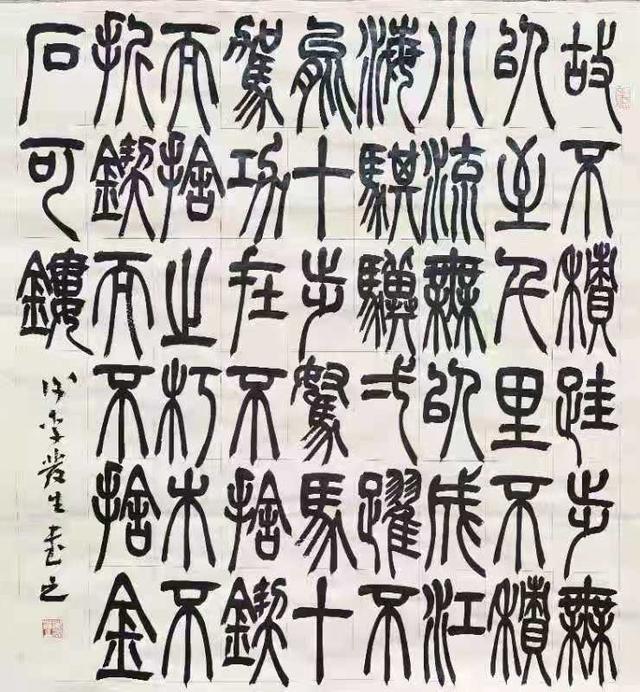 故不積跬步無
以至千里不積
小流無以成江
海騏驥弌躍不
能十步駑馬十
駕功在不捨鍥
而捨之朽木不
折鍥而不捨金
石可鏤
李發生書之